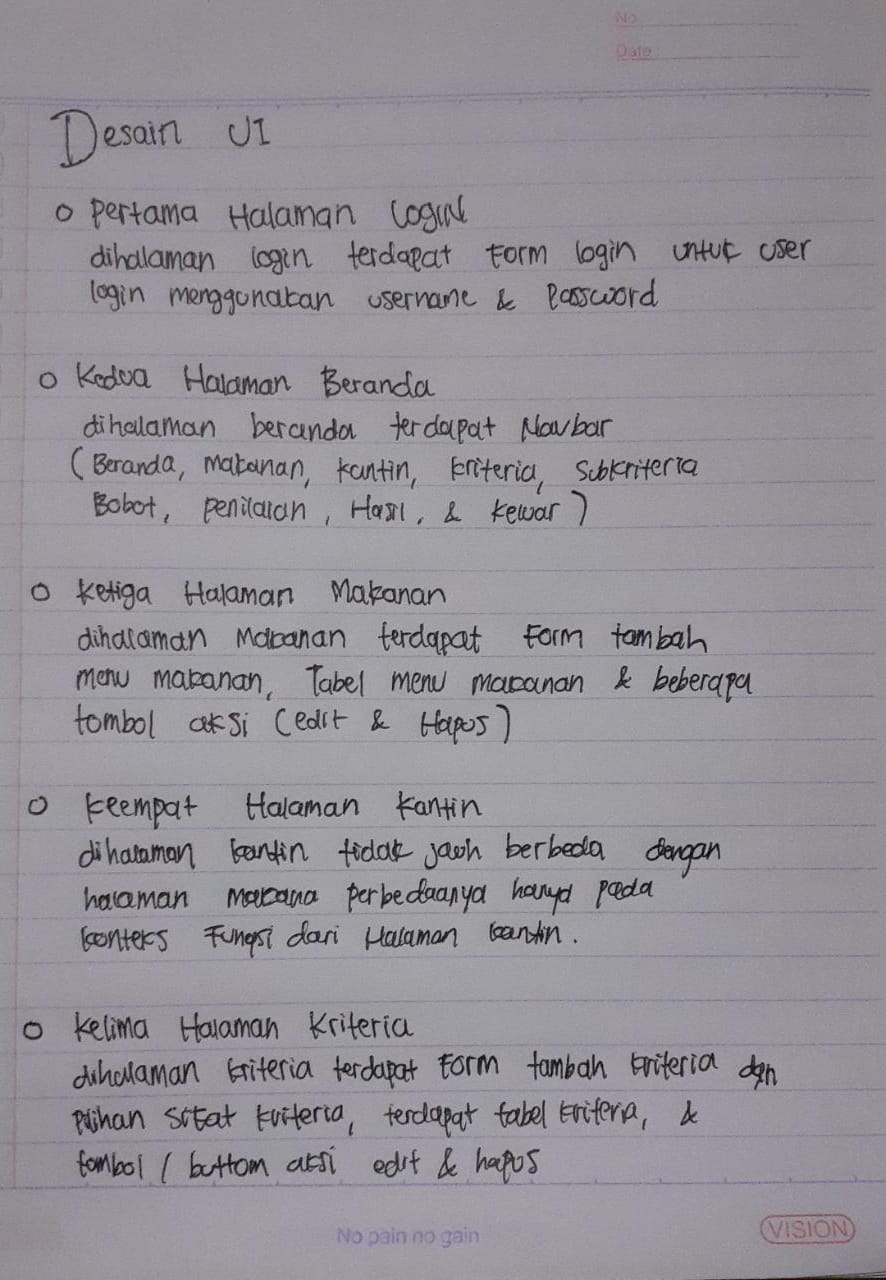 No
Date
Desain UI
o Pertama Halaman Login
dihalaman login terdapat Form login untuk user
login menggunakan username & Password
o Kedua Halaman Beranda
dihalaman beranda terdapat Navbar
(Beranda, makanan, kantin, kriteria, Subkriteria
Bobot, penilaian, Hasil, & kewar)
o ketiga Halaman Makanan
dihalaman Makanan terdapat Form tambah
menu makanan, Tabel menu makanan & beberapa
tombol aksi (edit & Hapus)
o keempat Halaman kantin
dihalaman kantin tidak jauh berbeda dengan
halaman makana perbedaanya hanya pada
konteks Fungsi dari Halaman kantin.
o kelima Halaman Kriteria
dihalaman kriteria terdapat Form tambah kriteria dgn
pilihan sifat kriteria, terdapat tabel kriteria, &
tombol / buttom aksi edit & hapus
No pain no gain
VISION